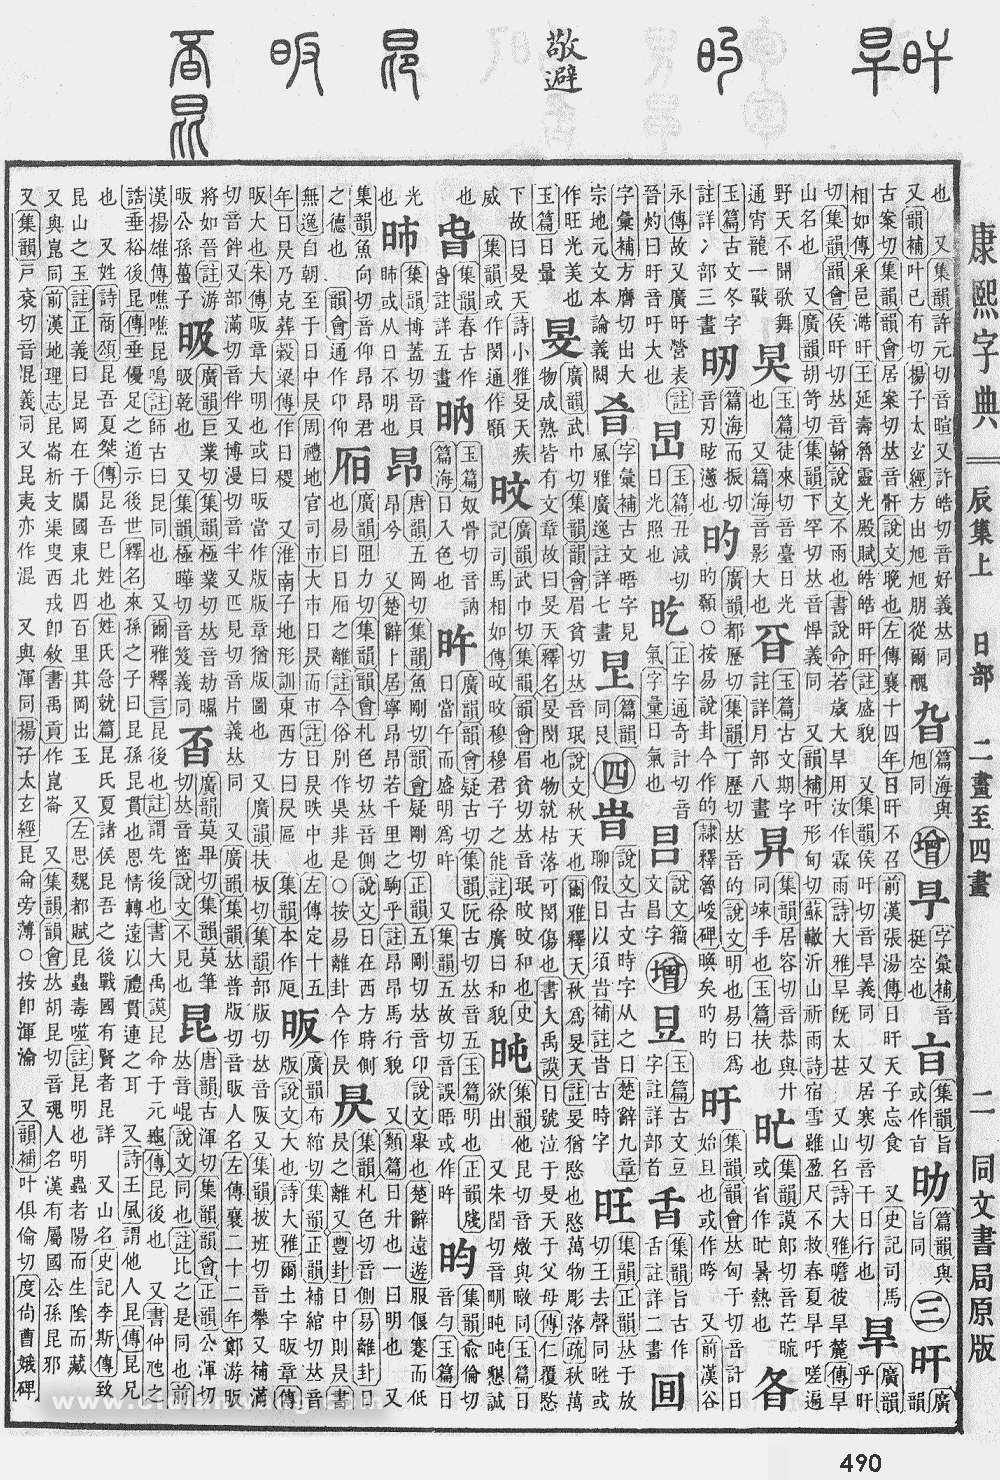 康熙字典 辰集上 日部 二畫至四畫 二 同文書局原版
敬避
也 又集韻許元切音暄又許皓切音好義𠀤同又韻補叶已有切揚子太玄經方出旭旭朋從爾醜 旮 篇海與旭同 增 早 字彙補音挺空也 集韻旨或作 篇韻與旨同 三 旰 廣韻
古案切集韻韻會居案切𠀤音骭說文晚也左傳襄十四年日旰不召前漢張湯傳日旰天子忘食 又史記司馬相如傳采色澔旰王延壽魯靈光殿賦皓皓旰旰註盛貌 又集韻侯旰切音旱義同 又居寒切音干日行也 旱 廣韻乎旰
切集韻韻會侯旰切𠀤音翰說文不雨也書說命若歲大旱用汝作霖雨詩大雅旱旣太甚 又山名詩大雅瞻彼旱麓傳旱山名也 又廣韻胡笴切集韻下罕切𠀤音悍義同 又韻補叶形甸切蘇轍沂山祈雨詩宿雪雖盈尺不救春夏旱吁嗟遍
野天不聞歌舞通宵龍一戰 旲 玉篇徒來切音臺日光也 又篇海音影大也 玉篇古文期字註詳月部八畫 集韻居容切音恭與廾同竦手也玉篇扶也 集韻謨郎切音芒 或省作 暑熱也
玉篇古文冬字註詳冫部三畫 篇海而振切音刃眩懣也 旳 廣韻都歷切集韻丁歷切𠀤音的說文明也易曰爲旳顙○按易說卦今作的隸釋魯峻碑㬇矣旳旳 旴 集韻韻會𠀤匈于切音訏日始旦也或作昤 又前漢谷
永傳故又廣旴營表註晉灼曰旴音吁大也 玉篇丑減切日光照也 正字通奇計切音氣字彙日氣也 昌 說文籀文昌字 增 玉篇古文豆字註詳部首 集韻舌古作 註詳二畫
字彙補方膺切出大宗地元文本論義闕 字彙補古文晤字見風雅廣逸註詳七畫 篇韻同艮 四 旹 說文古文時字从之日楚辭九章聊假日以須旹補註旹古時字 旺 集韻正韻𠀤于放切王去聲同暀或
作旺光美也玉篇日暈 旻 廣韻武巾切集韻韻會眉貧切𠀤音珉說文秋天也爾雅釋天秋爲旻天註旻猶愍也愍萬物彫落疏秋萬物成熟皆有文章故曰旻天釋名旻閔也物就枯落可閔傷也書大禹謨日號泣于旻天于父母傳仁覆愍
下故曰旻天詩小雅旻天疾威 集韻或作閔通作頣 旼 廣韻武巾切集韻韻會眉貧切𠀤音珉旼和也史記司馬相如傳旼旼穆穆君子之能註徐廣曰和貌 旽 集韻他昆切音燉與暾同玉篇日欲出 又朱閏切音㽥旽旽懇誠
也 旾 集韻春古作旾註詳五畫 㕯 玉篇奴骨切音訥篇海日入色也 旿 廣韻韻會疑古切集韻阮古切𠀤音五玉篇明也正韻牋日當午而盛明爲旿 又集韻五故切音誤晤或作旿 昀 集韻兪倫切音勻玉篇日
光 昁 集韻博蓋切音貝昁或从日不明也 昂 唐韻五岡切集韻魚剛切韻會疑剛切正韻五剛切𠀤音卬說文擧也楚辭遠遊服偃蹇而低昂兮 又楚辭卜居寧昂昂若千里之駒乎註昂昂馬行貌 又類篇日升也一曰明也 又
集韻魚向切音仰昂昂君之德也 韻會通作卬仰 㫊 廣韻阻力切集韻韻會札色切𠀤音側說文日在西方時側也易曰日㫊之離註今俗別作昊非是○按易離卦今作昃 昃 集韻札色切音側易離卦日昃之離又豐卦日中則昃書
無逸自朝至于日中昃周禮地官司市大市日昃而市註日昃昳中也左傳定十五年日昃乃克葬穀梁傳作日稷 又淮南子地形訓東西方曰昃區 集韻本作㫊 昄 廣韻布綰切集韻正韻補綰切𠀤音版說文大也詩大雅爾土宇昄章傳
昄大也朱傳昄章大明也或曰昄當作版版章猶版圖也 又廣韻扶板切集韻部版切𠀤音阪又集韻披班切音攀又補滿切音餠又部滿切音伴又博漫切音半又匹見切音片義𠀤同 又廣韻集韻𠀤普版切音眅人名左傳襄二十二年鄭游昄
將如晉註游昄公孫蠆子 昅 廣韻巨業切集韻極業切𠀤音劫曝昅乾也 又集韻極曄切音笈義同 否 廣韻莫畢切集韻莫筆切𠀤音密說文不見也 昆 唐韻古渾切集韻韻會正韻公渾切𠀤音崐說文同也註比之是同也前
漢揚雄傳噍噍昆鳴註師古曰昆同也 又爾雅釋言昆後也註謂先後也書大禹謨昆命于元龜傳昆後也 又書仲虺之誥垂裕後昆傳垂優足之道示後世釋名來孫之子曰昆孫昆貫也恩情轉遠以禮貫連之耳 又詩王風謂他人昆傳昆兄
也 又姓詩商頌昆吾夏桀傳昆吾巳姓也姓氏急就篇昆氏夏諸侯昆吾之後戰國有賢者昆詳 又山名史記李斯傳致昆山之玉註正義曰昆岡在于闐國東北四百里其岡出玉 又左思魏都賦昆蟲毒噬註昆明也明蟲者陽而生陰而藏
又與崑同前漢地理志昆崙析支渠叟西戎卽敘書禹貢作崑崙 又集韻韻會𠀤胡昆切音魂人名漢有屬國公孫昆邪又集韻戸袞切音混義同又昆夷亦作混 又與渾同揚子太玄經昆侖旁薄○按卽渾淪 又韻補叶俱倫切度尙曹娥碑
490